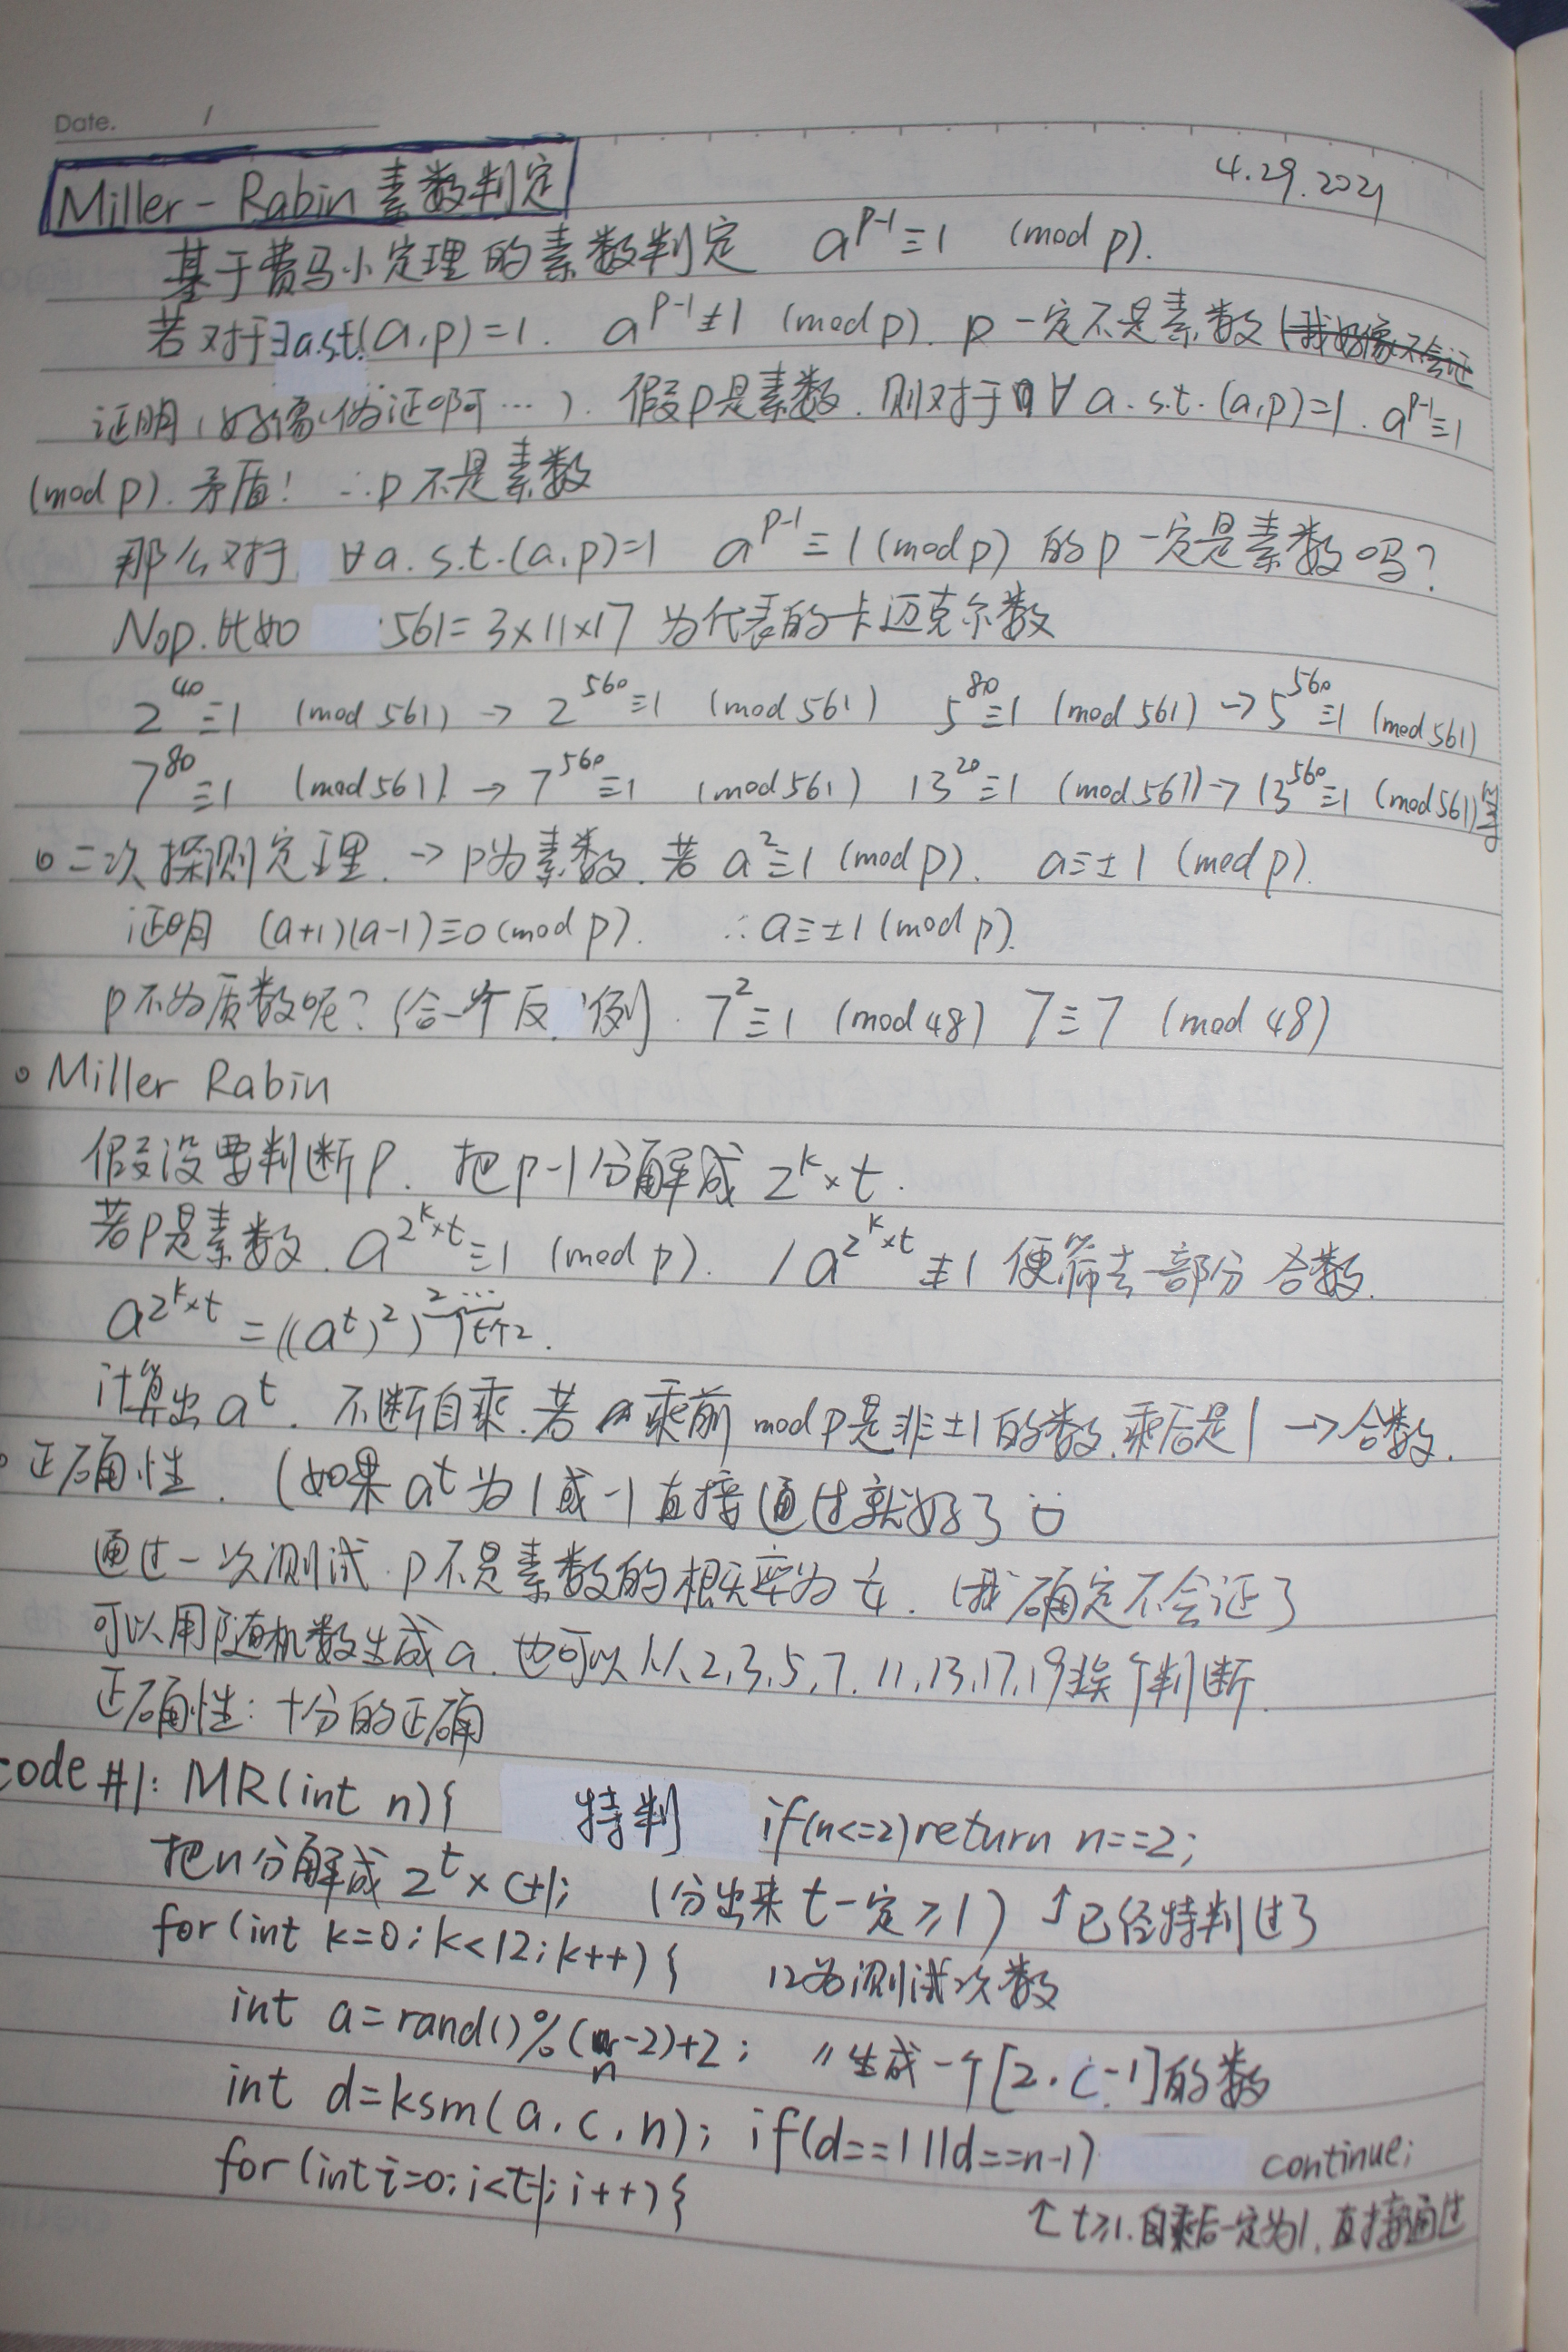 Date. /
4.29.2021
Miller-Rabin 素数判定
基于费马小定理的素数判定 a^{p-1}≡1 (mod p).
若对于∃a.s.t.(a,p)=1. a^{p-1}≢1 (mod p). p 一定不是素数 (我好像不会证
证明(好像伪证啊…). 假p是素数. 则对于∀a.s.t.(a,p)=1. a^{p-1}≡1
(mod p). 矛盾! ∴p不是素数
那么对于 ∀a.s.t.(a,p)=1 a^{p-1}≡1(mod p) 的p一定是素数吗?
Nop.比如 561=3×11×17 为代表的卡迈克尔数
2^{40}≡1 (mod 561) → 2^{560}≡1 (mod 561) 5^{80}≡1 (mod 561) → 5^{560}≡1 (mod 561)
7^{80}≡1 (mod 561) → 7^{560}≡1 (mod 561) 13^{20}≡1 (mod 561) → 13^{560}≡1 (mod 561)等
二次探测定理. → p为素数. 若 a²≡1 (mod p). a≡±1 (mod p).
证明 (a+1)(a-1)≡0(mod p). ∴a≡±1(mod p).
p不为质数呢? (合一个反例). 7²≡1 (mod 48) 7≡7 (mod 48)
Miller Rabin
假设要判断P. 把p-1分解成 2^k×t.
若p是素数. a^{2^k×t}≡1 (mod p). / a^{2^k×t}≢1 便筛去一部分合数.
a^{2^k×t} = ((a^t)²)^{2…} t个2.
计算出 a^t. 不断自乘.若乘前 mod p是非±1的数.乘后是1 → 合数.
正确性. (如果 a^t 为1或-1直接通过就好了
通过一次测试.p不是素数的概率为 ¼. (我确定不会证了
可以用随机数生成a.也可以从2,3,5,7,11,13,17,19挨个判断.
正确性: 十分的正确
code #1: MR(int n){ 特判 if(n<=2)return n==2;
把n分解成 2^t×c+1; (分出来 t一定≥1) ↑已经特判过了
for(int k=0;k<12;k++){ 12为测试次数
int a=rand()%(n-2)+2; //生成一个[2.c-1]的数
int d=ksm(a,c,n); if(d==1||d==n-1) continue;
for(int i=0;i<t-1;i++){
↑t≥1.自乘后一定为1.直接通过